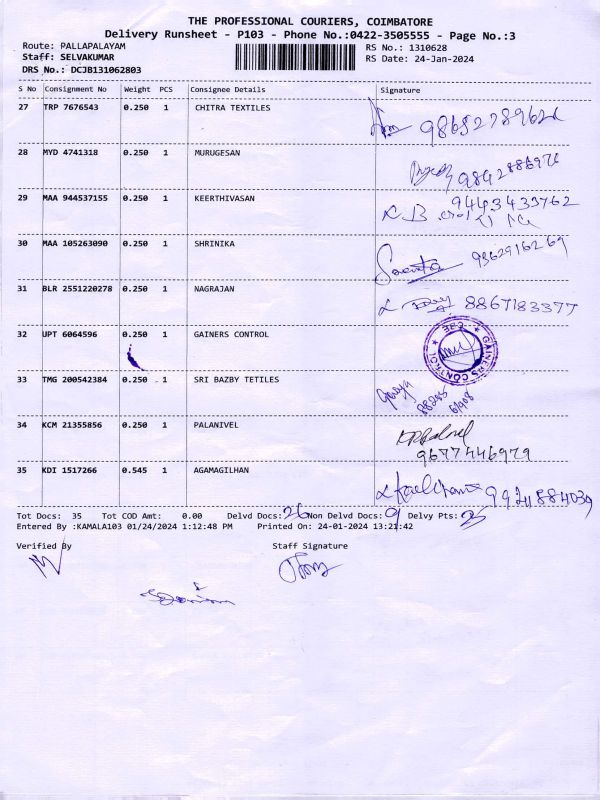 THE PROFESSIONAL COURIERS, COIMBATORE
Delivery Runsheet - P103 - Phone No.:0422-3505555 - Page No.:3
Route: PALLAPALAYAM RS No.: 1310628
Staff: SELVAKUMAR RS Date: 24-Jan-2024
DRS No.: DCJB131062803
S No Consignment No Weight PCS Consignee Details Signature
27 TRP 7676543 0.250 1 CHITRA TEXTILES
28 MYD 4741318 0.250 1 MURUGESAN
29 MAA 944537155 0.250 1 KEERTHIVASAN 9443433762
30 MAA 105263090 0.250 1 SHRINIKA 9362916269
31 BLR 2551220278 0.250 1 NAGRAJAN 8867183377
32 UPT 6064596 0.250 1 GAINERS CONTROL
GAINERS CONTROL CBE
33 TMG 200542384 0.250 1 SRI BAZBY TETILES
34 KCM 21355856 0.250 1 PALANIVEL
9677446979
35 KDI 1517266 0.545 1 AGAMAGILHAN
Tot Docs: 35 Tot COD Amt: 0.00 Delvd Docs: 26 Non Delvd Docs: 9 Delvy Pts: 25
Entered By :KAMALA103 01/24/2024 1:12:48 PM Printed On: 24-01-2024 13:21:42
Verified By Staff Signature